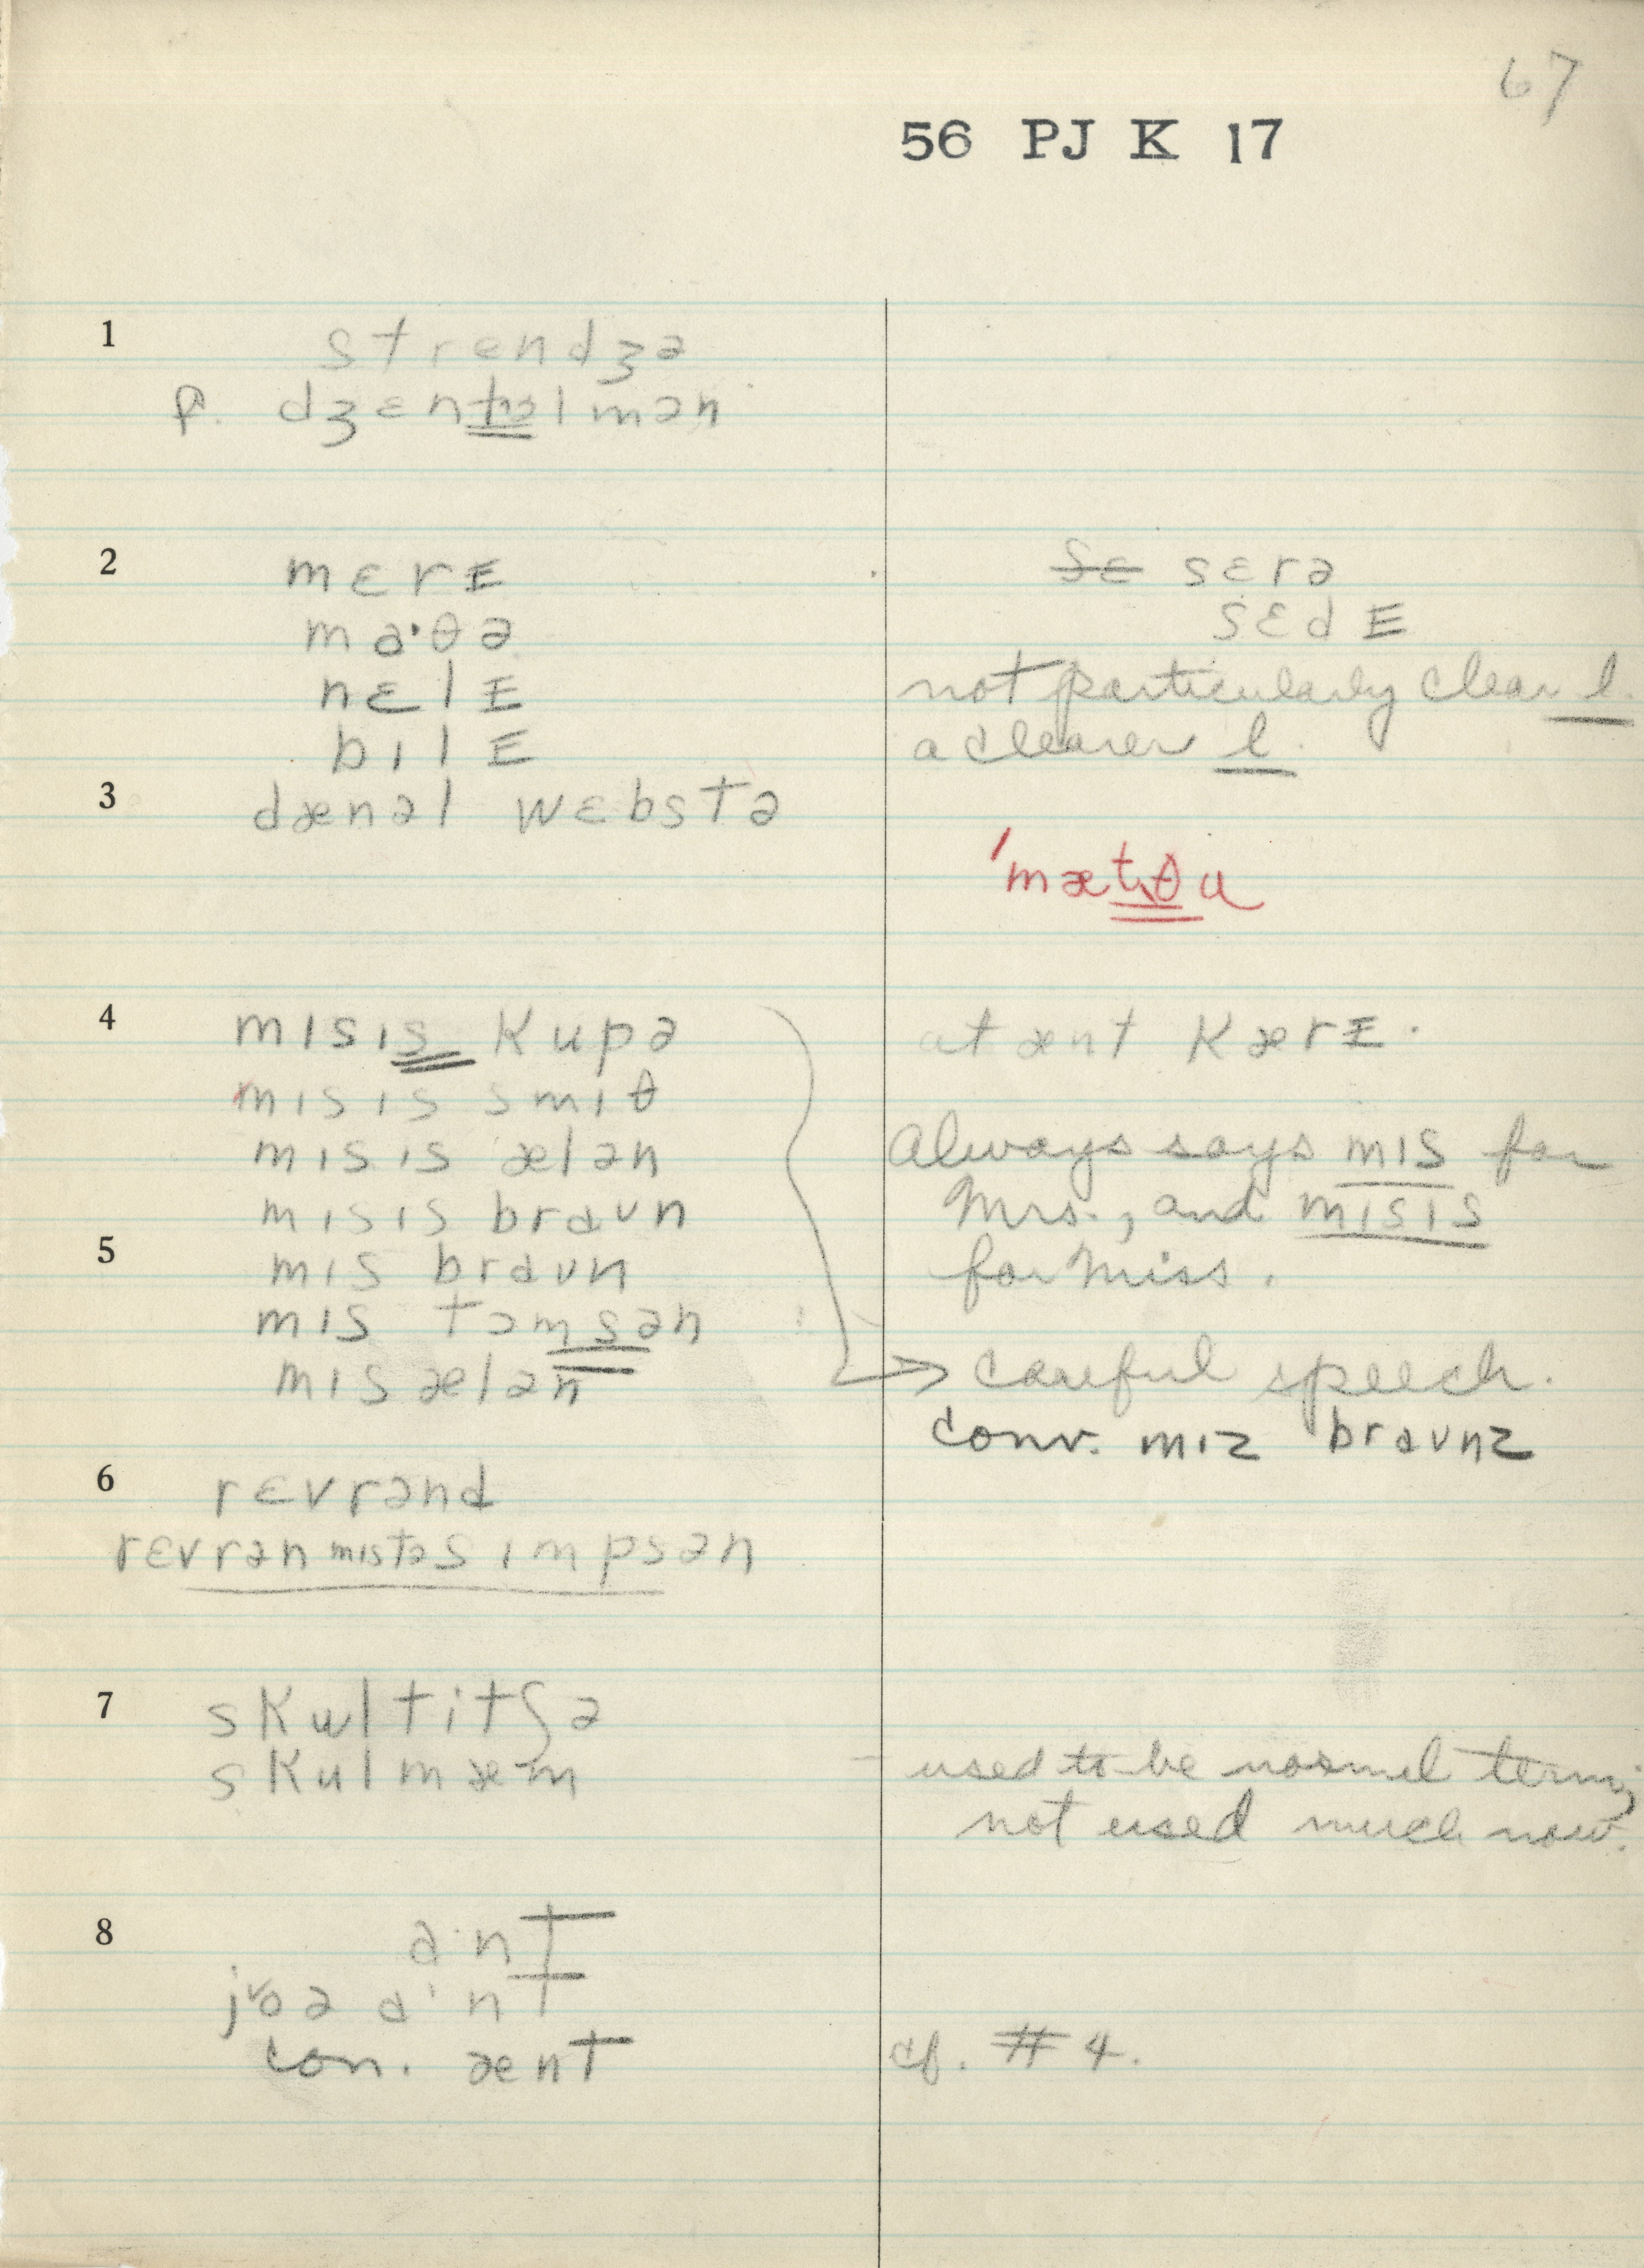 67
56 PJ K 17
1 strendʒə
p. dʒɛntəlmən
2 mɛrɪ ~~sɛ~~ sɛrə
ma·θə sɛdɪ
nɛlɪ not particularly clear l.
bɪlɪ a clearer l.
3 dænəl wɛbstə
'mætθu
4 mɪsɪs kupə at ænt kærɪ.
mɪsɪs smɪθ
mɪsɪs ælən Always says mɪs for
mɪsɪs braʊn Mrs., and mɪsɪs
5 mɪs braʊn for Miss.
mɪs tɔmsən
mɪs ælən → careful speech.
conv. mɪz braʊnz
6 rɛvrənd
rɛvrən mɪstə sɪmpsən
7 skultitʃə
skulmæm used to be normal term;
not used much now.
8 a·nt
jʊə a·nt
con. ænt cf. #4.